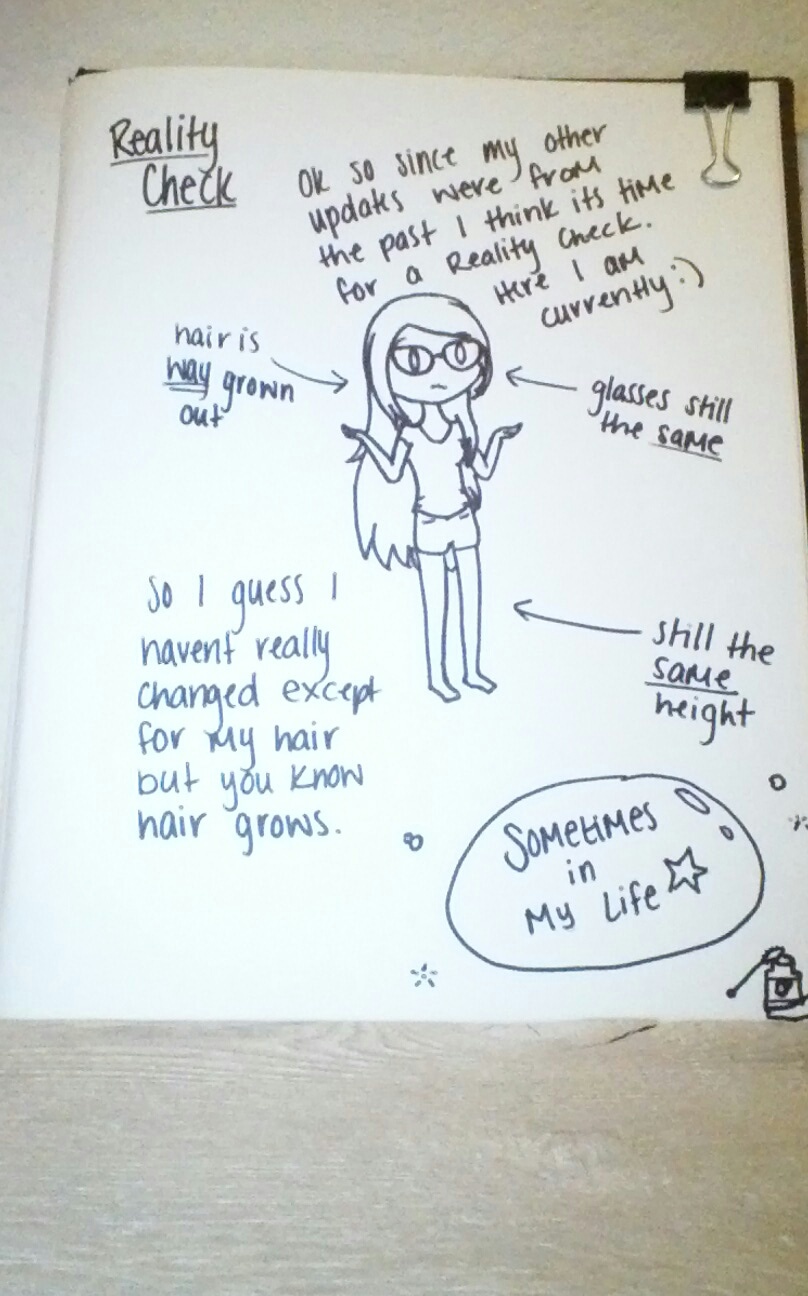 Reality
Check
Ok so since my other
updates were from
the past I think its time
for a Reality Check.
Here I am
currently :)
hair is
way grown
out
glasses still
the same
So I guess I
havent really
changed except
for my hair
but you know
hair grows.
still the
same
height
Sometimes
in
My Life